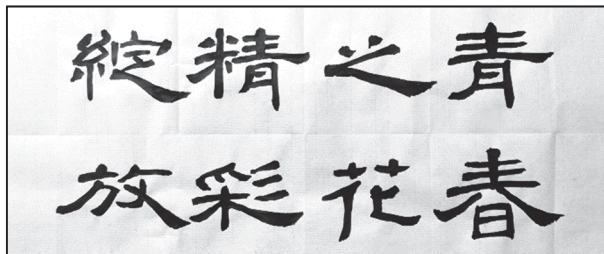 青春
之花
精彩
綻放